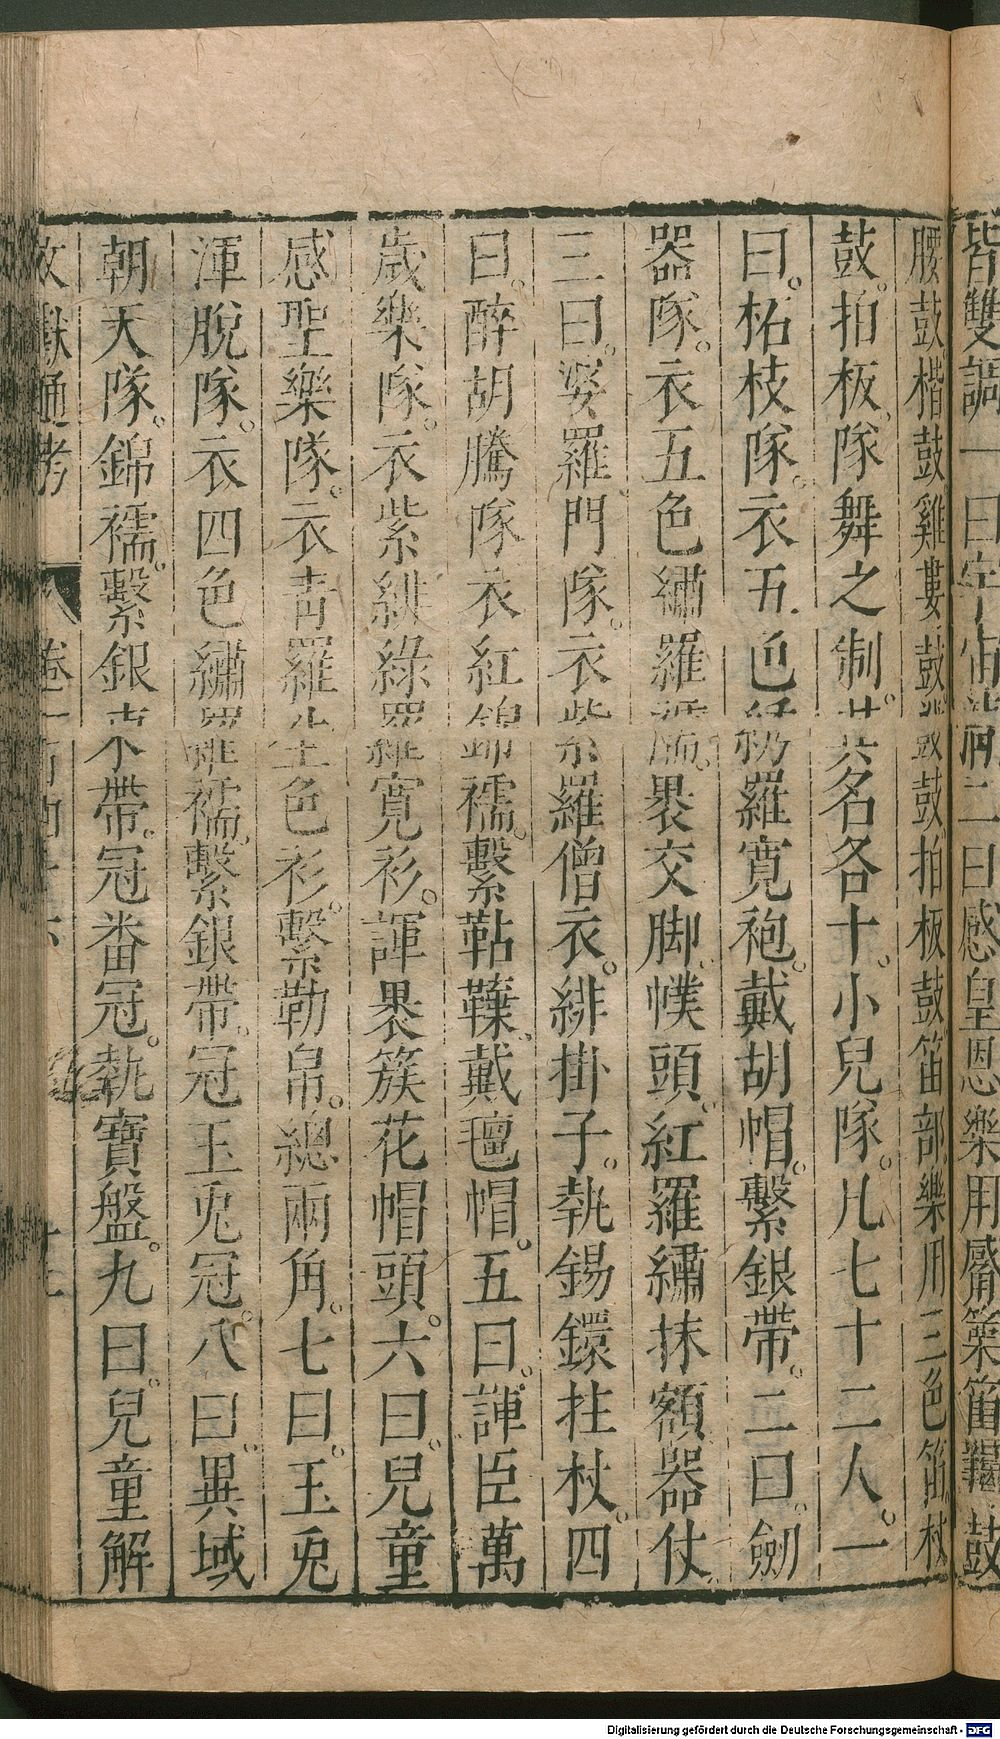 皆雙調一曰宇宙清二曰感皇恩樂用觱篥笛羯鼓
腰鼓楷鼓雞婁鼓鼗鼓拍板鼓笛部樂用三色笛杖
鼓。拍板。隊舞之制。其名各十。小兒隊。凡七十二人。一
曰。柘枝隊。衣五色綉羅寛袍。戴胡帽。繫銀帶。二曰。劍
器隊。衣五色繡羅襦。褁交脚幞頭。紅羅繡抹額。器仗。
三曰。婆羅門隊。衣紫羅僧衣。緋掛子。執錫鐶拄杖。四
曰。醉胡騰隊衣紅錦襦。繫鞊鞢。戴氊帽。五曰。諢臣萬
歲樂隊。衣紫緋綠羅寛衫。諢褁簇花帽頭。六曰兒童
感聖樂隊。衣靑羅生色衫。繫勒帛。總兩角。七曰。玉兎
渾脫隊。衣四色繡羅襦。繫銀帶。冠玉兎冠。八曰異域
朝天隊。錦襦。繫銀束帶。冠畨冠。執寶盤。九曰。兒童解
文獻通考 卷一百四十六